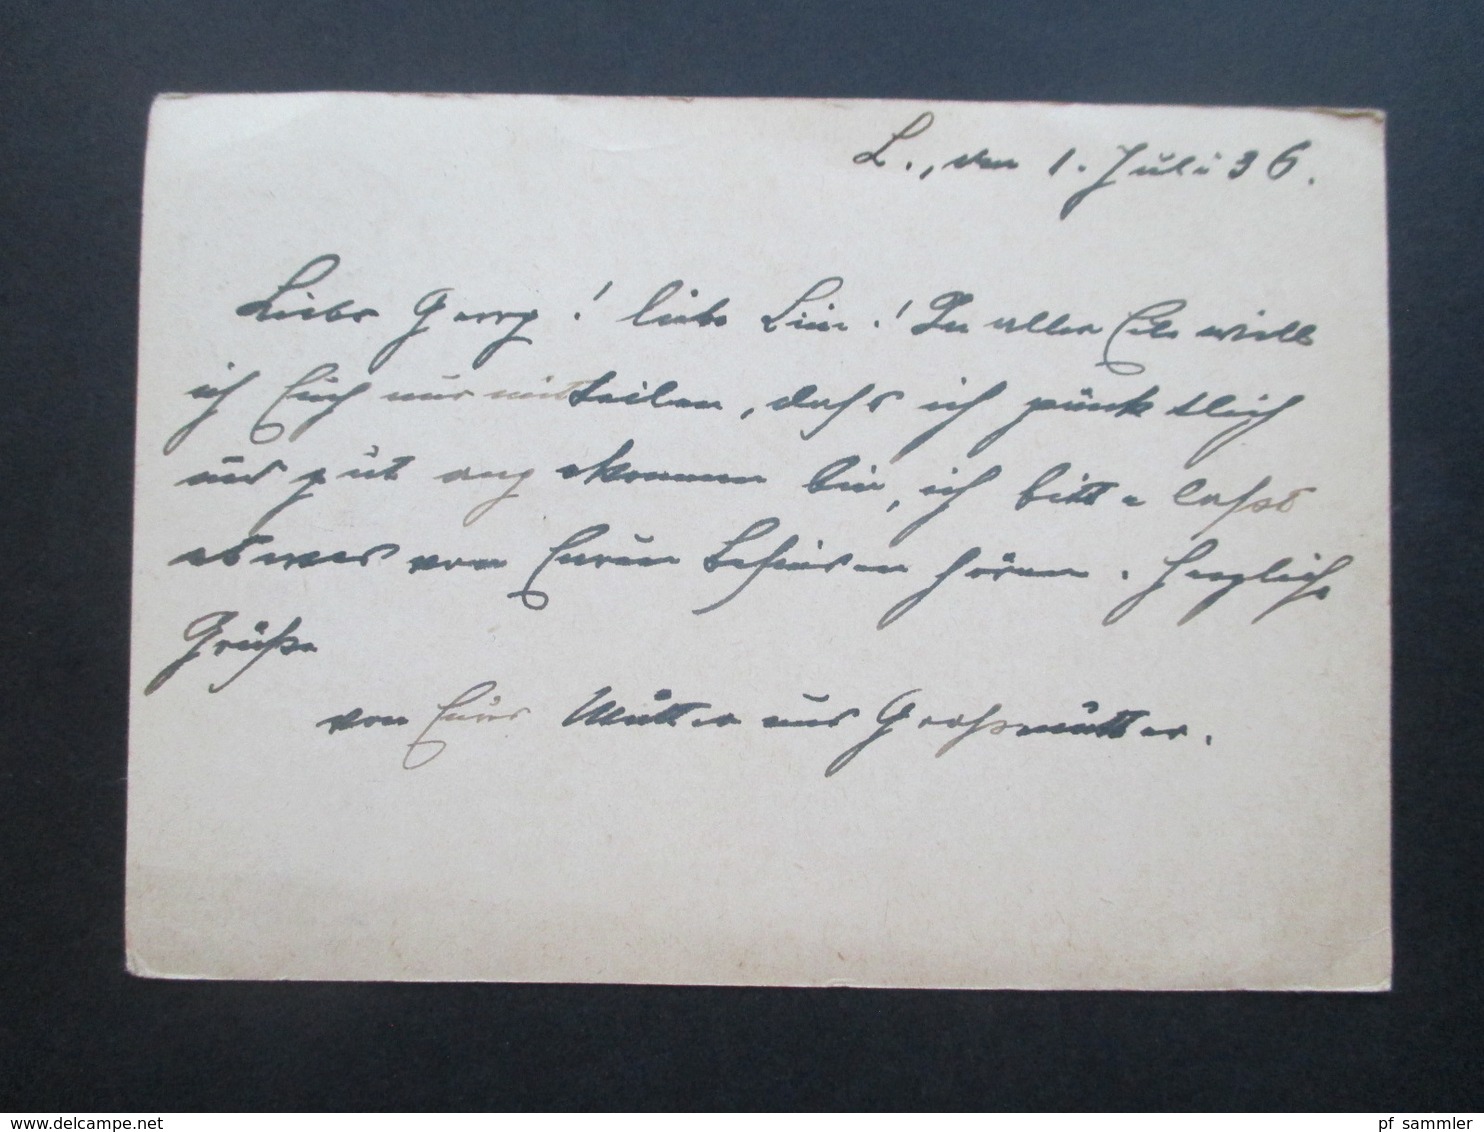 L., den 1. Juli 36.
Lieber Georg! liebe Line! In aller Eile will
ich Euch nur mitteilen, daß ich pünktlich
und gut angekommen bin, ich bitte laßt
etwas von Euren hören. Herzliche
Grüße
von Eurer Mutter und Großmutter.
delcampe.net
pf_sammler